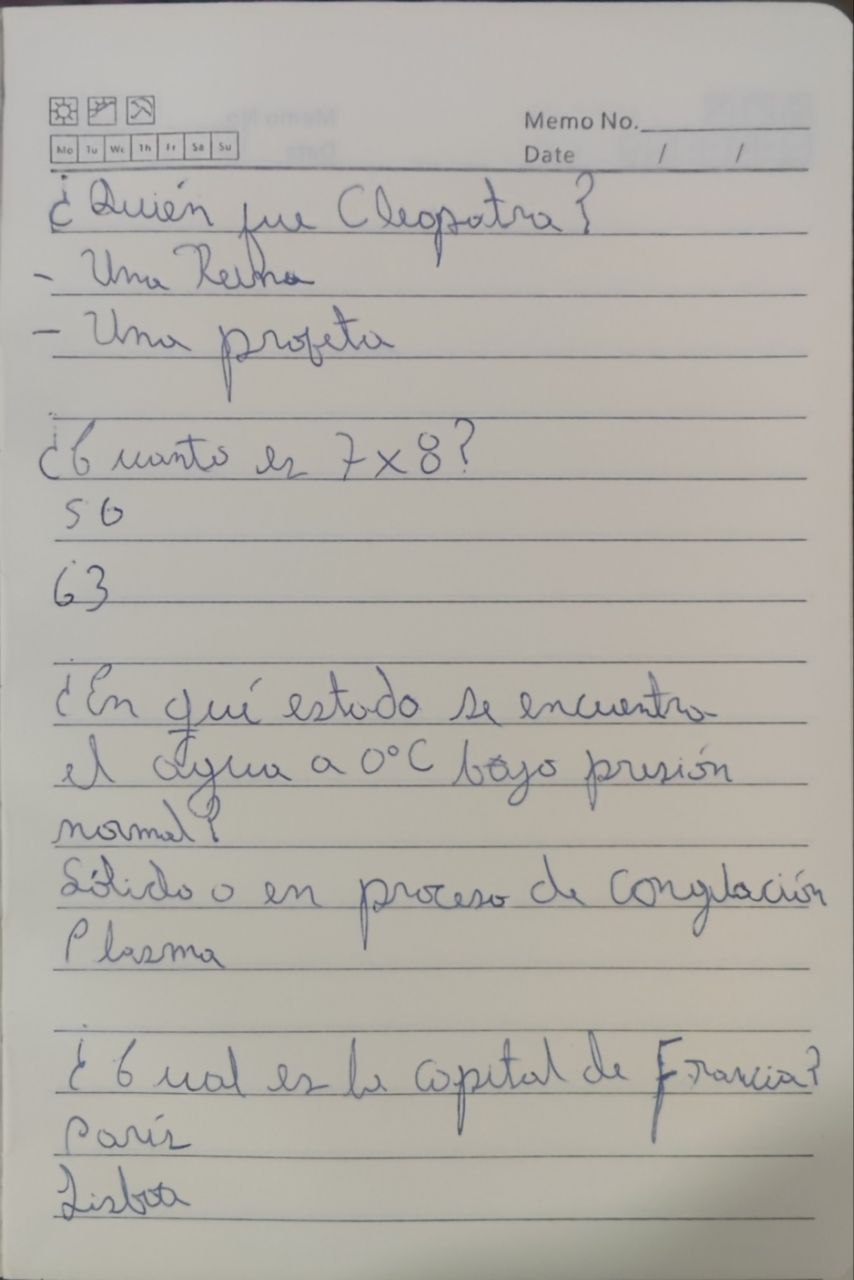 Memo No.
Mo Tu We Th Fr Sa Su
Date / /
¿Quién fue Cleopatra?
- Una Reina
- Una profeta
¿Cuanto es 7x8?
56
63
¿En qué estado se encuentra
el agua a 0°C bajo presión
normal?
Sólido o en proceso de congelación
Plasma
¿Cual es la capital de Francia?
París
Lisboa